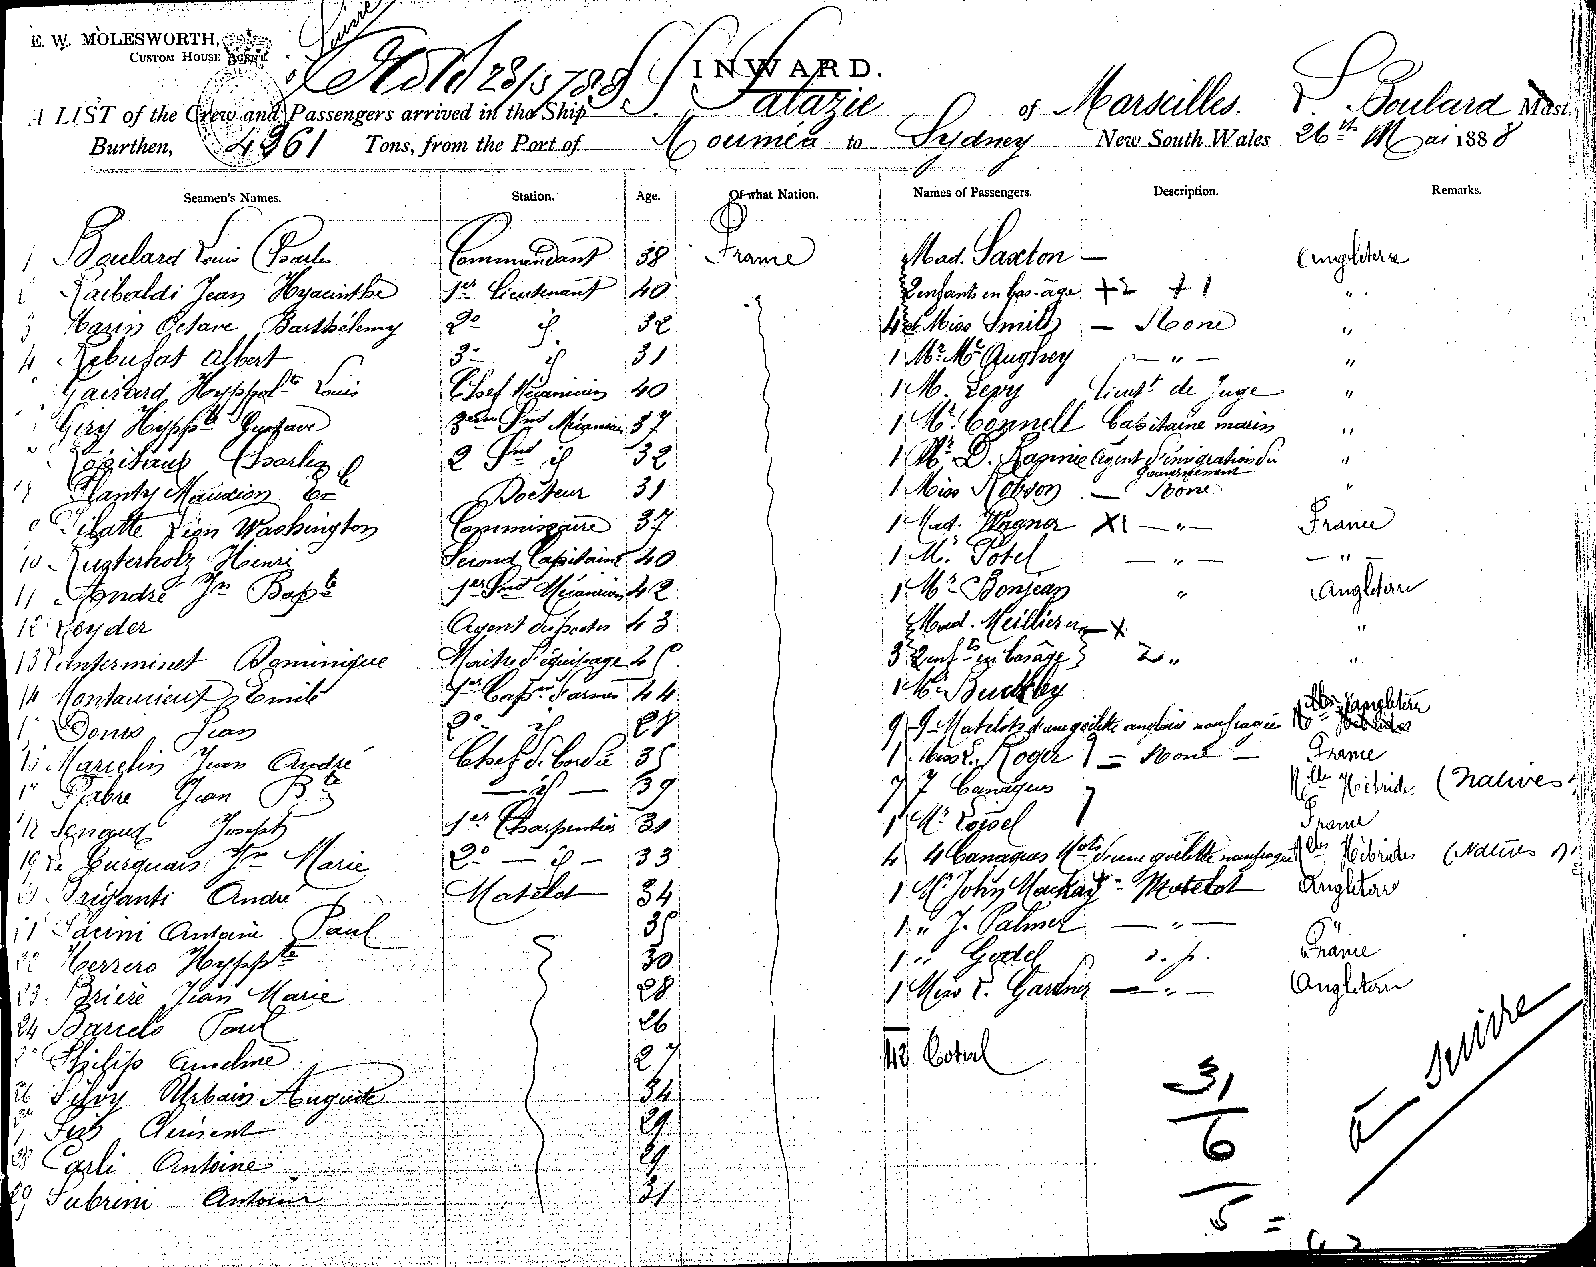 E. W. MOLESWORTH,
CUSTOM HOUSE
Suivre
INWARD.
A LIST of the Crew and Passengers arrived in the Ship S.S. Salazie of Marseilles. L. Boulard Mast.
Burthen, 4261 Tons, from the Port of Nouméa to Sydney New South Wales 26th Mai 1888
Seamen's Names. Station. Age. Of what Nation. Names of Passengers. Description. Remarks.
1 Boulard Louis Charles Commandant 38 France Mad. Saxton — Angleterre
Raibaldi Jean Hyacinthe 1er Lieutenant 40 2 enfants en bas-âge +2 +1 "
3 Marin Octave Barthélemy 2e id 32 4 et Miss Smith — None "
4 Rebufat Albert 3e id 31 1 Mr Mc Aughey — " — "
Gairard Hyppolte Louis Chef Mécanicien 40 1 M. Levy Lieutt de Juge "
Giry Hyppte Gustave 37 1 Mr Connell Capitaine marin "
Charles 2 id 32 1 Mr D. Rannie Agent d'émigration du Gouvernement "
Planty Mauxion Docteur 31 1 Miss Robson — None "
9 Pilatte Léon Washington Commissaire 37 1 Mad. Wagner X1 — " — France
10 Rusterholz Henri Second Capitaine 40 1 Mr Potel — " — — " —
11 André Jn Bapte 1er Mécanicien 42 1 Mr Bonjean " Angleterre
12 Leyder Agent des postes 43 Mad. Meillier — X "
13 Dominique Maitre d'équipage 45 3 2 enfts en bas âge 2 " "
14 Emile 1er Cape d'armes 44 1 Mr Buckley
Donis Jean 2e id 28 9 9 Matelots d'une goëlette anglaise naufragée
Marcelin Jean André Chef de bordée 35 1 Miss L. Roger — None — France
Fabre Jean Bte — id — 39 7 7 Canaques Nlles Hébrides (Natives
Joseph 1er Charpentier 31 1 Mr Loisel France
19 Le Jn Marie 2e — id — 33 4 4 Canaques Mots d'une goëlette naufragée Nlles Hébrides (Natives
Briganti André Matelot 34 1 Mr John Mackay - Matelot Angleterre
Sarini Antoine Paul 35 1 " J. Palmer — " — "
22 Herrero Hyppte 30 1 " Godel d. p. France
23 Brière Jean Marie 28 1 Miss E. Gardner — " — Angleterre
24 Barielo Paul 26
Philip Anselme 27 42 Total
26 Silvy Urbain Auguste 34
Clément 29
28 Carli Antoine 29
29 Subrini Antoine 31
31
6
5 =
à suivre